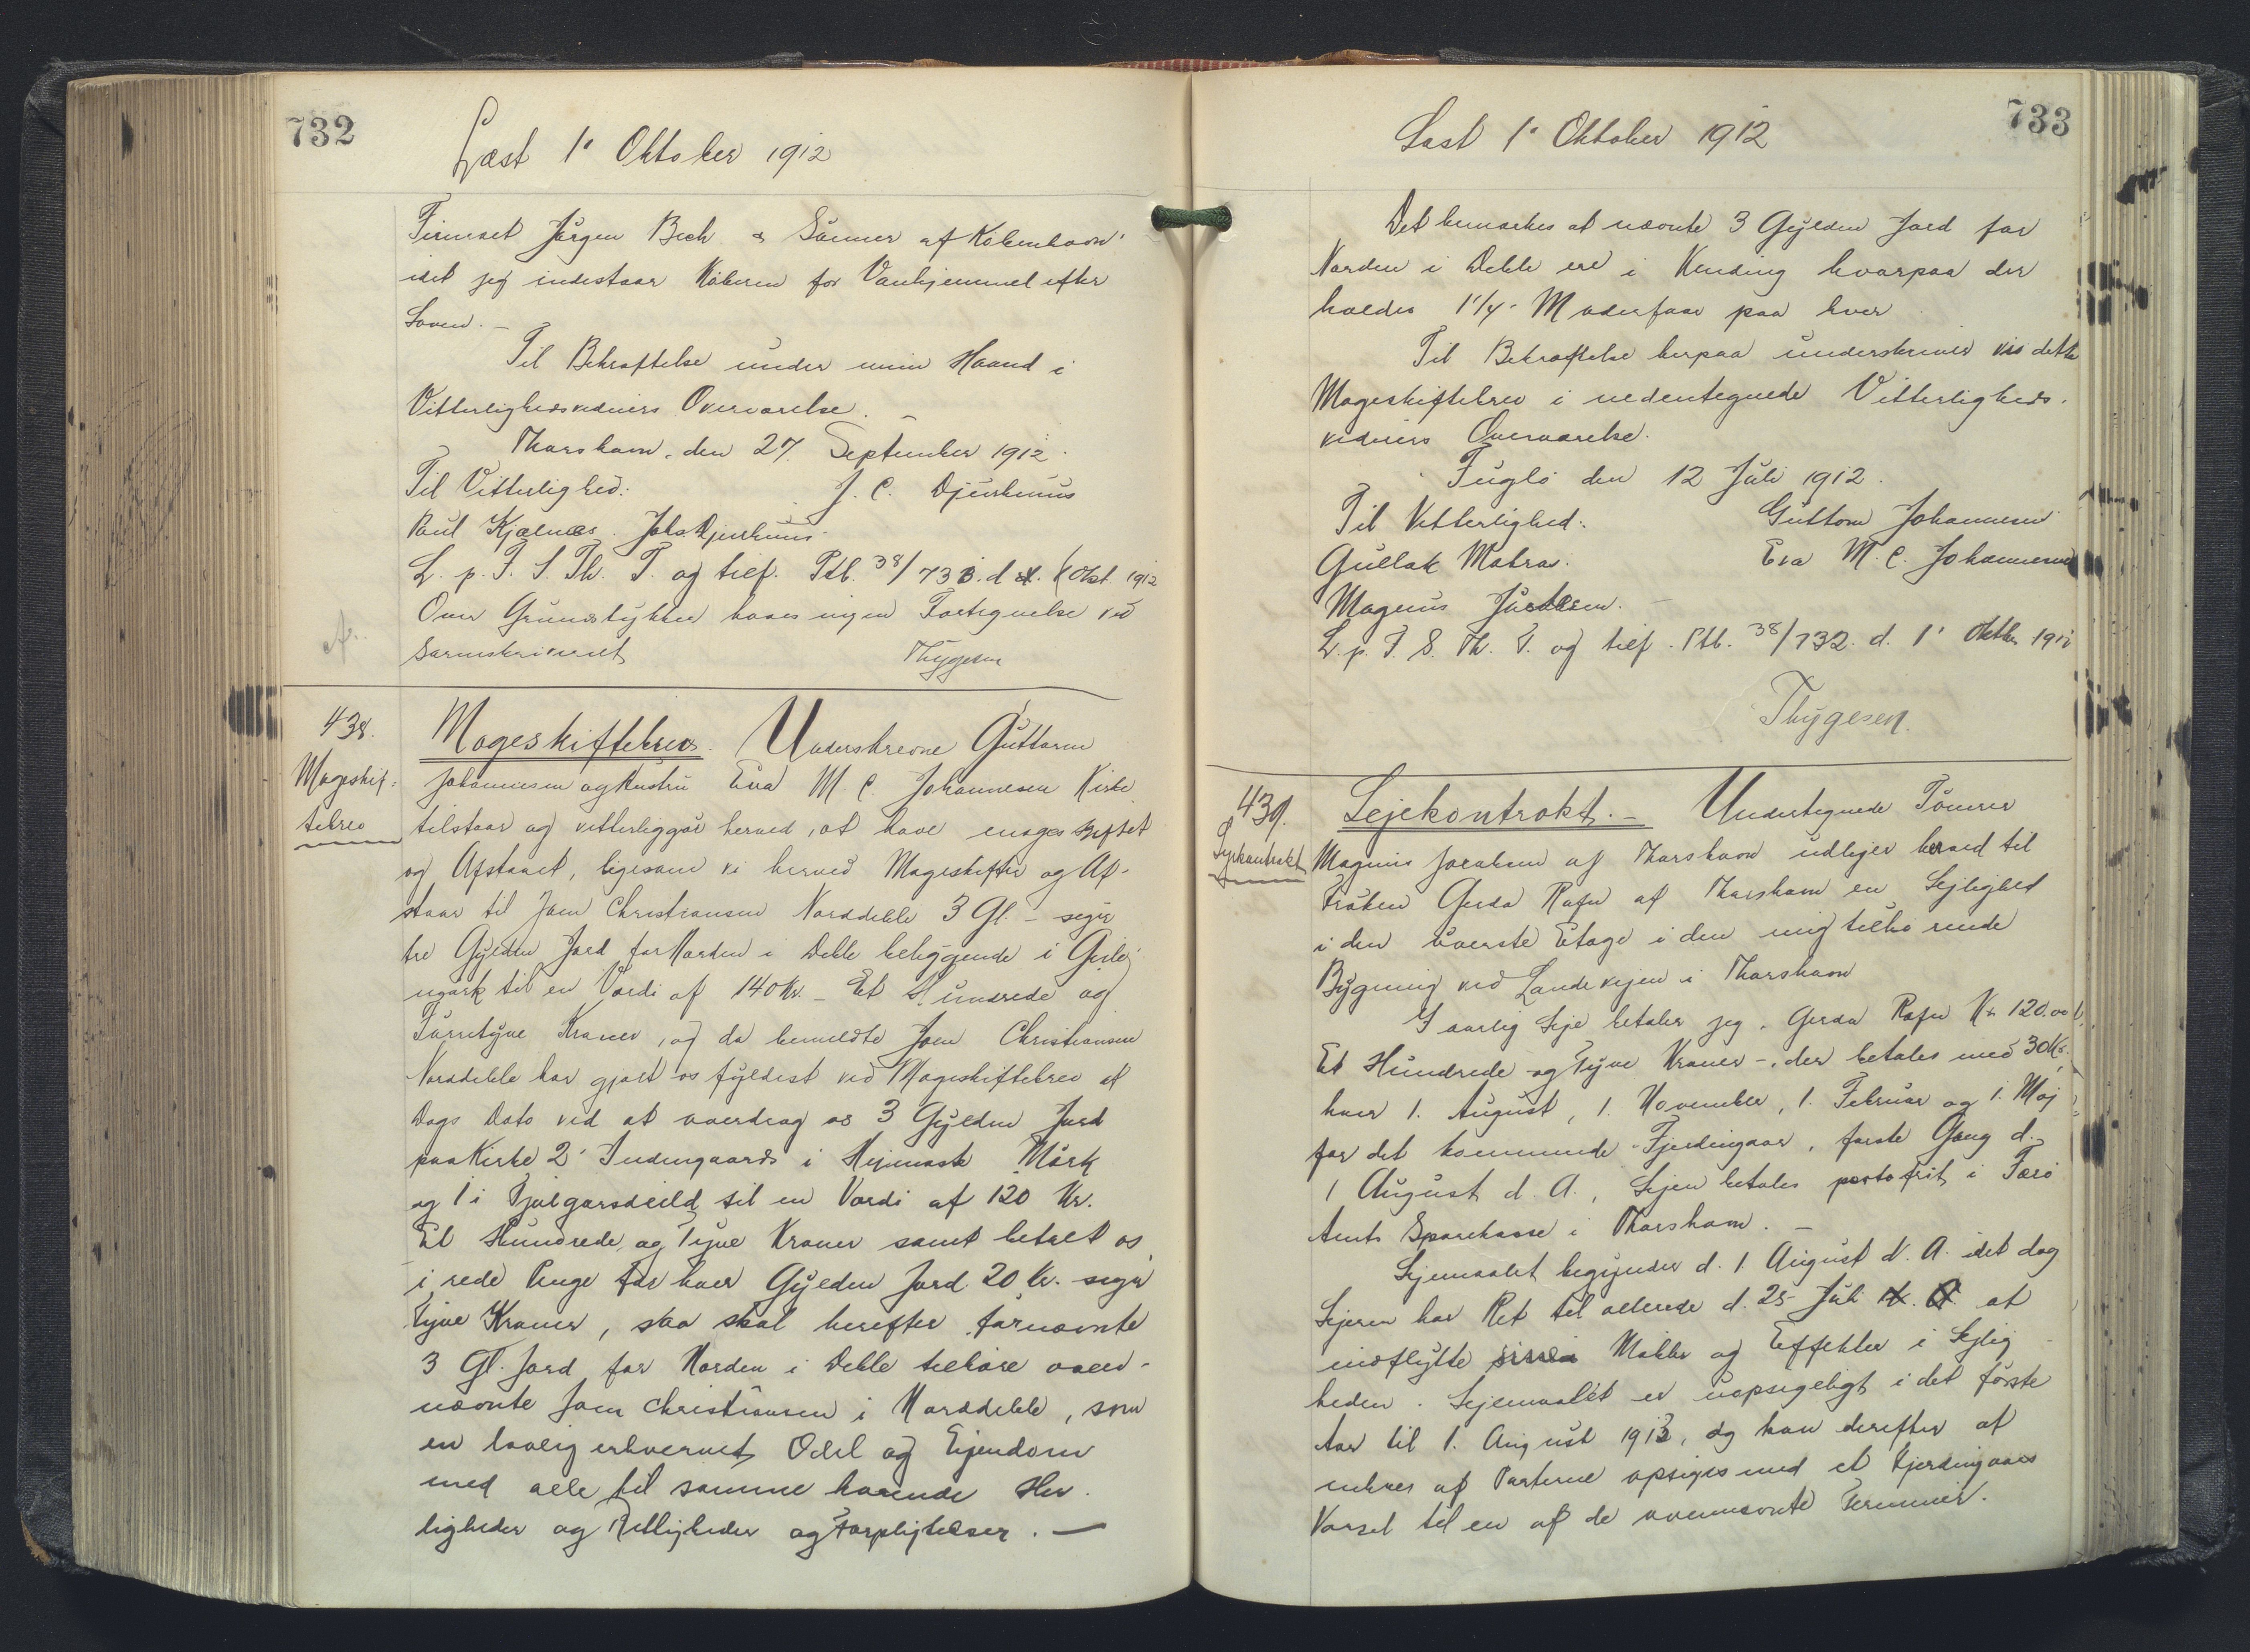 732
Læst 1' Oktober 1912
Firmaet Jørgen Bech & Sønner af København
idet jeg indestaar Køberen for Vanhjemmel efter
Loven. —
Til Bekræftelse under min Haand i
Vitterlighedsvidners Overværelse. —
Thorshavn, den 27. September 1912.
Til Vitterlighed: J. C. Djurhuus
Poul Kjælnæs. Johs Djurhuus
L. p. F. S. Th. T. og tilf. Ptb. 38/733. d. 1 Okt. 1912
Over Grundstykket haves ingen Fortegnelse ved
Sorenskriveriet
Thygesen
438.
Mageskif-
tebrev
Mageskiftebrev. Underskrevne Guttorm
Johannesen og Hustru Eva M. C. Johannesen Kirke
tilstaar og vitterliggør herved, at have mageskiftet
og Afstaaet, ligesom vi herved Mageskifter og Af-
staar til Joen Christiansen Norddeble 3 Gl. – siger
tre Gylden Jord for Norden i Deble beliggende i
til en Værdi af 140 Kr. – Et Hundrede og
Fürretyve Kroner, og da bemeldte Joen Christiansen
Norddeble har gjort os fyldest ved Mageskiftebrev af
Dags Dato ved at overdrag os 3 Gylden Jord
paa Kirke 2' Indengaards i Heimaste Mørk
og 1 i til en Værdi af 120 Kr.
Et Hundrede og Tyve Kroner samt betalt os
i rede Penge for hver Gylden Jord 20 Kr. siger
Tyve Kroner, saa skal herefter førnævnte
3 Gl. Jord for Norden i Deble tilhøre oven-
nævnte Joen Christiansen i Norddeble, som
en lovlig erhvervet Odel og Ejendom
med alle til samme hørende Her-
ligheder og Rettigheder og Forpligtelser. —
733
Læst 1' Oktober 1912
Det bemærkes at nævnte 3 Gylden Jord for
Norden i Deble ere i Kending hvorpaa der
holdes 1 1/4 Moderfaar paa hver
Til Bekræftelse herpaa underskriver vi dette
Mageskiftebrev i nedentegnede Vitterligheds-
vidners Overværelse.
Fuglø den 12 Juli 1912.
Til Vitterlighed: Guttorm Johannesen
Gullak Matras. Eva M. C. Johannesen
Magnus Jacobsen. —
L. p. F. S. Th. T. og tilf. Ptb. 38/732. d. 1' Oktbr 1912
Thygesen.
439.
Lejekontrakt
Lejekontrakt. – Undertegnede Tømrer
Magnus Jacobsen af Thorshavn udlejer herved til
Frøken Gerda Rafn af Thorshavn en Lejlighed
i den øverste Etage i den mig tilhørende
Bygning ved Landevejen i Thorshavn
I aarlig Leje betaler jeg, Gerda Rafn Kr. 120.00
Et Hundrede og Tyve Kroner –, der betales med 30 Kr.
hver 1. August, 1. November, 1. Februar og 1. Maj
for det kommende Fjerdingaar, første Gang d.
1 August d. A., Lejen betales portofrit i Færø
Amts Sparekasse i Thorshavn. —
Lejemaalet begynder d. 1 August d. A. idet dog
Lejeren har Ret til allerede d. 25 Juli d. A. at
indflytte sine Møbler og Effekter i Lejlig-
heden. Lejemaalet er uopsigeligt i det første
Aar til 1. August 1913, og kan derefter af
enhver af Parterne opsiges med et Fjerdingaars
Varsel til en af de ovennævnte Terminer.